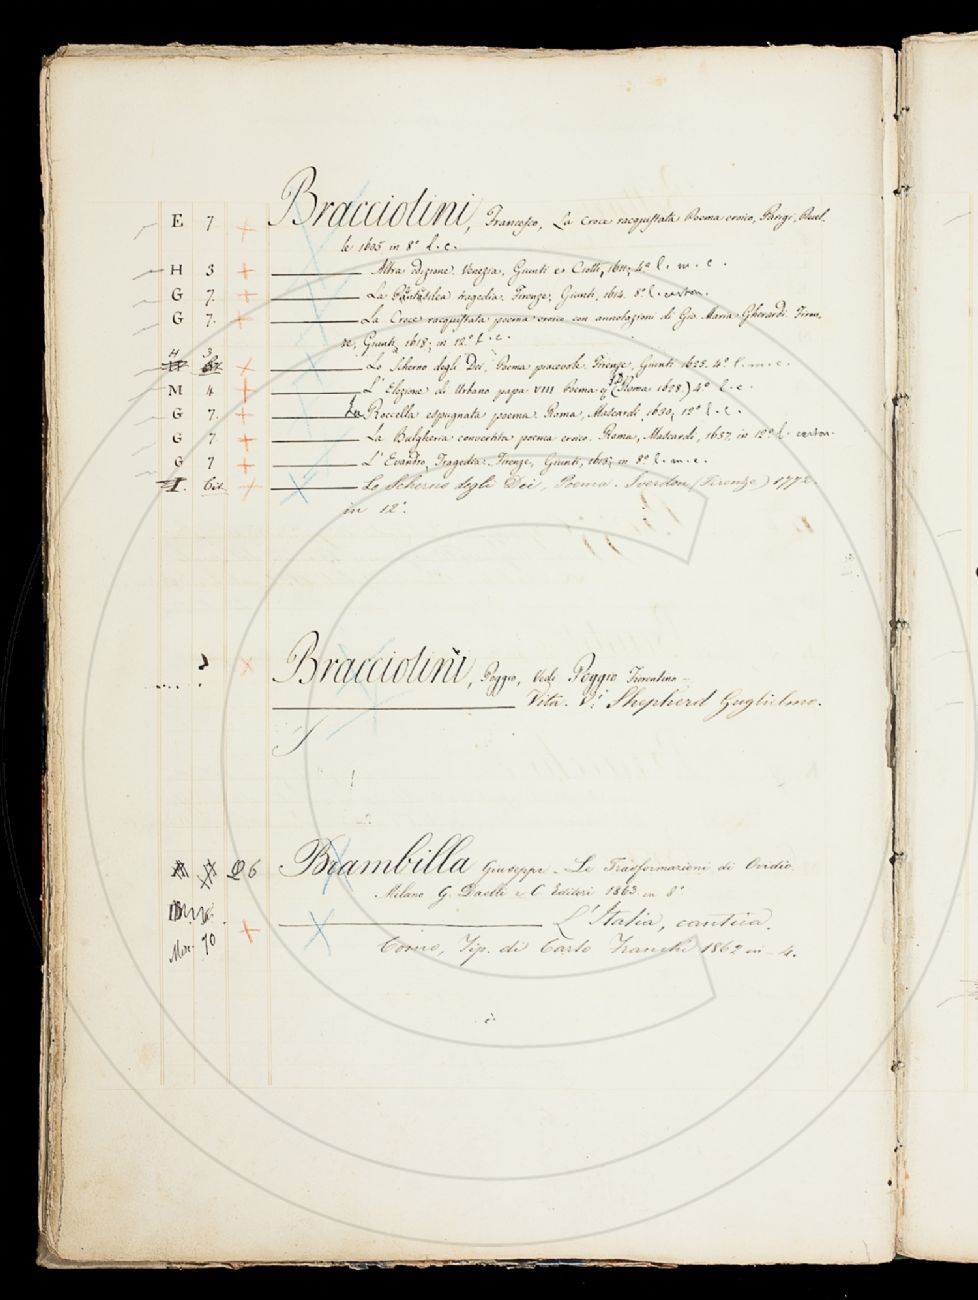 E 7 Bracciolini, Francesco, La Croce racquistata Poema eroico, Parigi, Ruel-
le 1605 in 8º l. c.
H 3 Altra edizione. Venezia, Giunti e Ciotti, 1611, 4º l. m. c.
G 7. La Pentesilea tragedia. Firenze, Giunti, 1614. 8º l.
G 7. La Croce racquistata poema eroico con annotazioni di Gio. Maria Gherardi. Firen-
ze, Giunti, 1618, in 12º l. c.
H 3 Lo Scherno degli Dei, Poema piacevole. Firenze, Giunti 1625. 4º l. m. c.
M 4 L'Elezione di Urbano papa VIII Poema (Roma 1628.) 4º l. c.
G 7. La Roccella espugnata poema. Roma, Mascardi, 1630, 12º l. c.
G 7 La Bulgheria convertita poema eroico. Roma, Mascardi, 1637. in 12º l.
G 7 L'Evandro, Tragedia. Firenze, Giunti, 1613, in 8º l. m. c.
I. Lo Scherno degli Dei, Poema. Iverdon (Firenze) 1772.
in 12º.
Bracciolini, Poggio, Vedi Poggio Fiorentino
Vita. V. Shepherd Guglielmo.
6 Brambilla Giuseppe - Le Trasformazioni di Ovidio
Milano G. Daelli e C. Editori 1863 in 8º
L'Italia, cantica.
70 Como, Tip. di Carlo Franchi 1862 in-4.